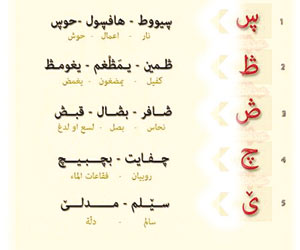 ڛ 1
ڛيووط - هافڛول - حوڛ
نار - اعمال - حوش
ڟ 2
ڟمين - يمڟغم - يغومڟ
كفيل - يمضغون - يغمض
ڞ 3
ڞافر - بڞال - قبڞ
نحاس - بصل - لسع او لدغ
چ 4
چفايت - بچبيچ
روبيان - فقاعات الماء
ێ 5
سێلم - مدلێ
سالم - دلّة